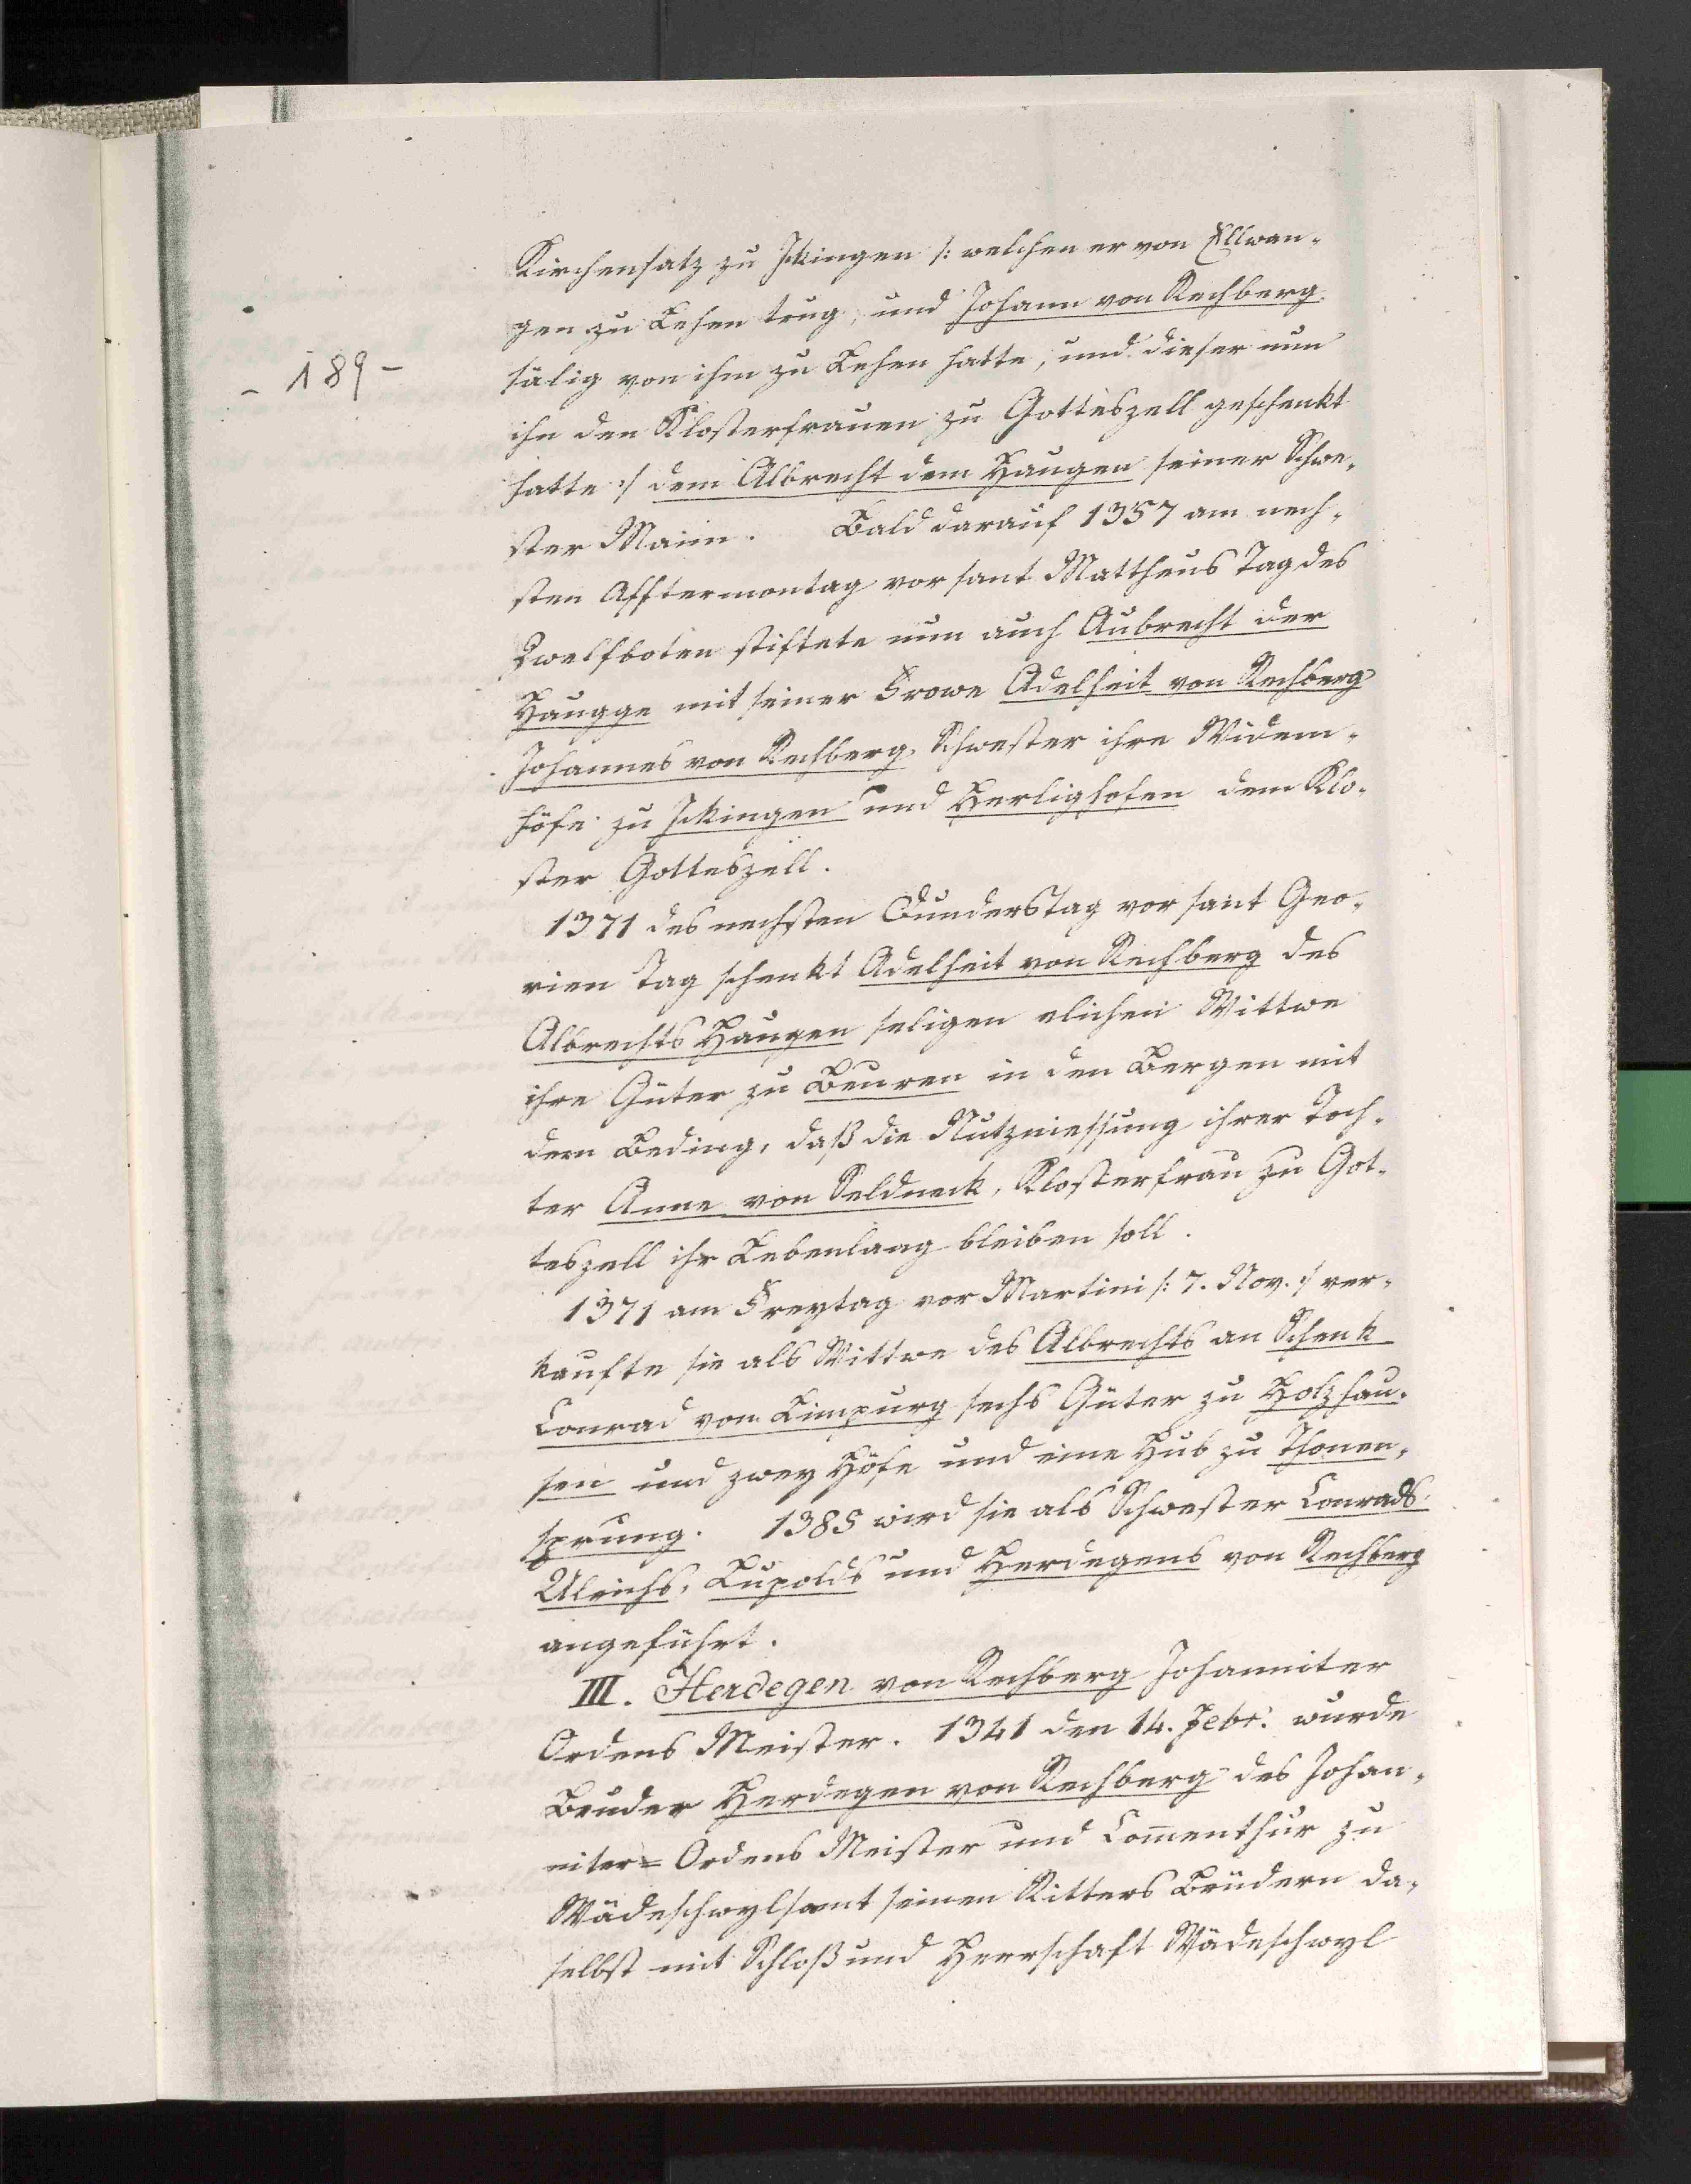 Kirchensatz zu Ickingen /: welchen er von Ellwan-
gen zu Lehen trug, und Johann von Rechberg
- 189 -
sälig von ihm zu Lehen hatte, und dieser nun
ihn den Klosterfrauen zu Gotteszell geschenkt
hatte :/ dem Albrecht dem Haugen seiner Schwe-
ster Mann. Bald darauf 1357 am nech-
sten Afftermontag vor sant Mattheus Tag des
Zwelfboten stiftete nun auch Aubrecht der
Haugge mit seiner Frowe Adelheit von Rechberg
Johannes von Rechberg Schwester ihre Widem-
höfe zu Ickingen und Herlighofen dem Klo-
ster Gotteszell.
1371 des nechsten Dunderstag vor sant Geo-
rien Tag schenkt Adelheit von Rechberg des
Albrechts Haugen seligen elichen Wittwe
ihre Güter zu Beuren in den Bergen mit
dem Beding, daß die Nutzniessung ihrer Toch-
ter Anne von Seldneck, Klosterfrau zu Got-
teszell ihr Lebenlang bleiben soll.
1371 am Freytag vor Martini /: 7. Nov. :/ ver-
kaufte sie als Wittwe des Albrechts an Schenk
Conrad von Limpurg sechs Güter zu Holzhau-
sen und zwey Höfe und eine Hub zu Thonen-
sprung. 1385 wird sie als Schwester Conrads
Ulrichs, Lupolds und Herdegens von Rechberg
angeführt.
III. Herdegen von Rechberg Johanniter
Ordens Meister. 1341 den 14. Febr. wurde
Bruder Herdegen von Rechberg des Johan-
niter= Ordens Meister und Comenthur zu
Wädeschwyl samt seinen Ritters Brüdern da-
selbst mit Schloß und Herrschaft Wädeschwyl